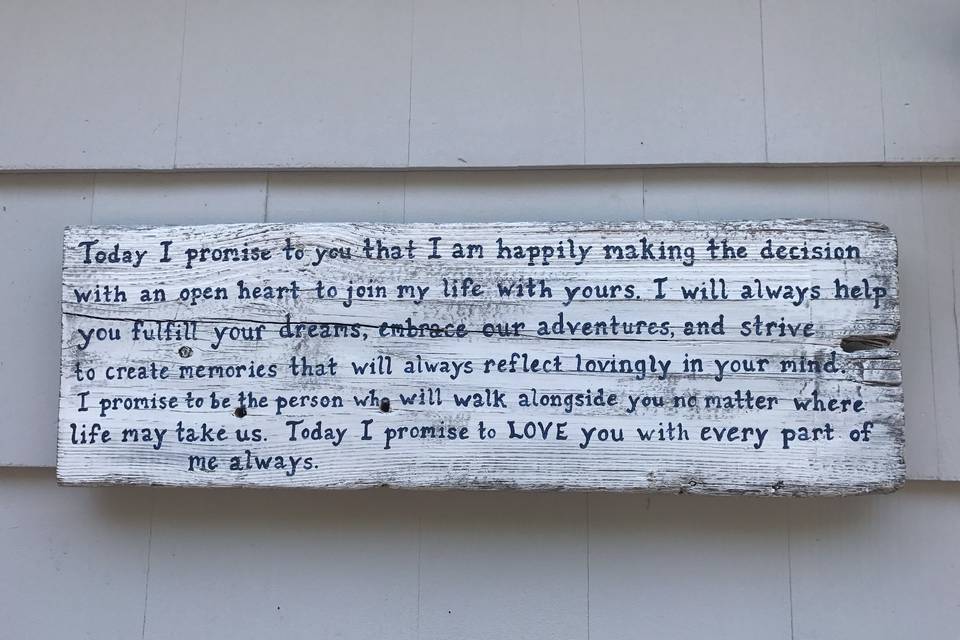 Today I promise to you that I am happily making the decision
with an open heart to join my life with yours. I will always help
you fulfill your dreams, embrace our adventures, and strive
to create memories that will always reflect lovingly in your mind.
I promise to be the person who will walk alongside you no matter where
life may take us. Today I promise to LOVE you with every part of
me always.